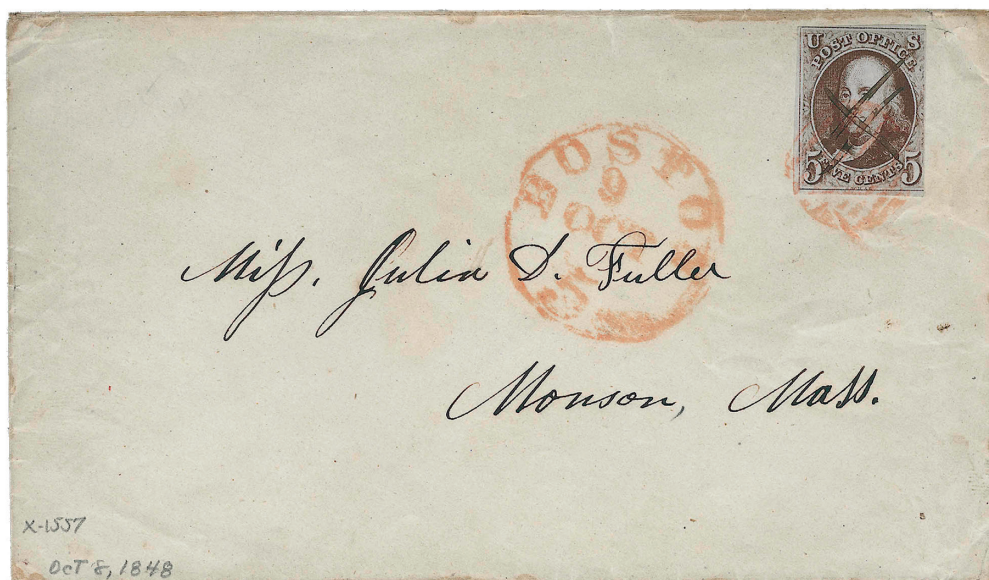 U S
POST OFFICE
5 FIVE CENTS 5
BOSTO
9
OCT
Miss. Julia D. Fuller
Monson, Mass.
X-1557
OCT 8, 1848